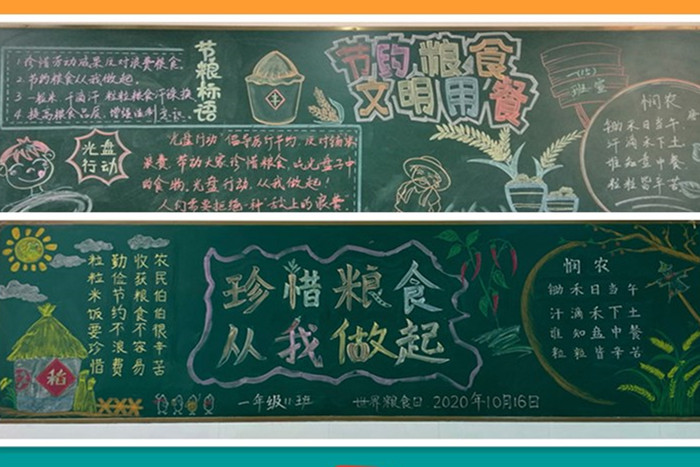 节粮标语
1.珍惜劳动成果反对浪费粮食.
2.节约粮食从我做起.
3.一粒米 千滴汗 粒粒粮食汗珠换
4.提高粮食品质,增强法制意识.
节约粮食
文明用餐
班
丰
光盘
行动
光盘行动 倡导厉行节约,反对铺张
浪费,带动大家珍惜粮食,吃光盘子中
的食物.光盘行动,从我做起!
人们需要拒绝一种"舌上的浪费.
悯农
锄禾日当午
汗滴禾下土
谁知盘中餐
粒粒皆辛苦
农民伯伯很辛苦
收获粮食不容易
勤俭节约不浪费
粒粒米饭要珍惜
珍惜粮食
从我做起
稻
一年级11班 世界粮食日 2020年10月16日
悯农
锄禾日当午
汗滴禾下土
谁知盘中餐
粒粒皆辛苦